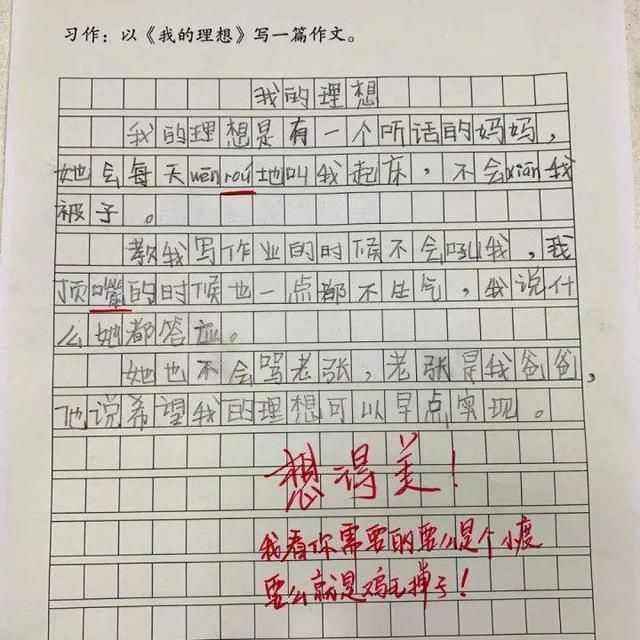 习作：以《我的理想》写一篇作文。
我的理想
我的理想是有一个听话的妈妈，
她会每天wen rou地叫我起床，不会xian我
被子。
教我写作业的时候不会吼我，我
顶嘴的时候也一点都不生气，我说什
么她都答应。
她也不会骂老张，老张是我爸爸，
他说希望我的理想可以早点实现。
想得美！
我看你需要的要么是个小
要么就是鸡毛掸子！